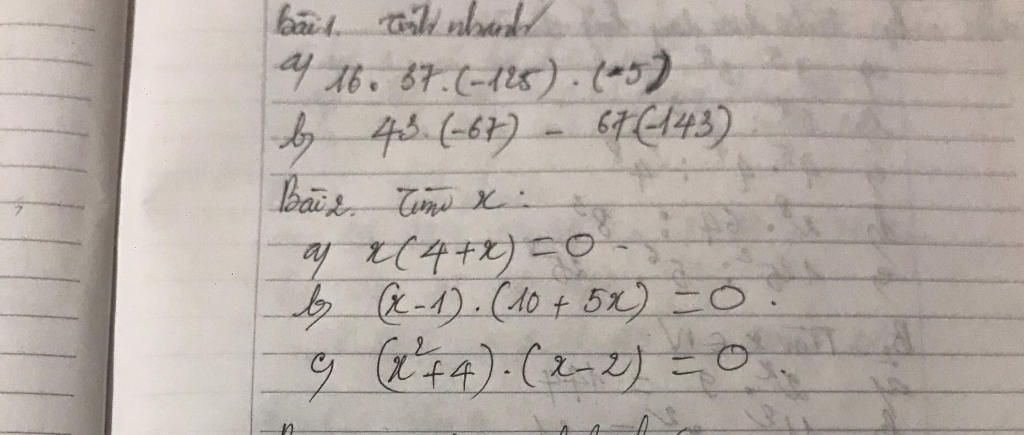 Bài 1. Tính nhanh
a) 16. 37.(-125) . (-5)
b) 43.(-67) - 67(-143)
Bài 2. Tìm x :
a) x(4+x) = 0
b) (x-1).(10 + 5x) = 0.
c) (x²+4).(x-2) = 0.